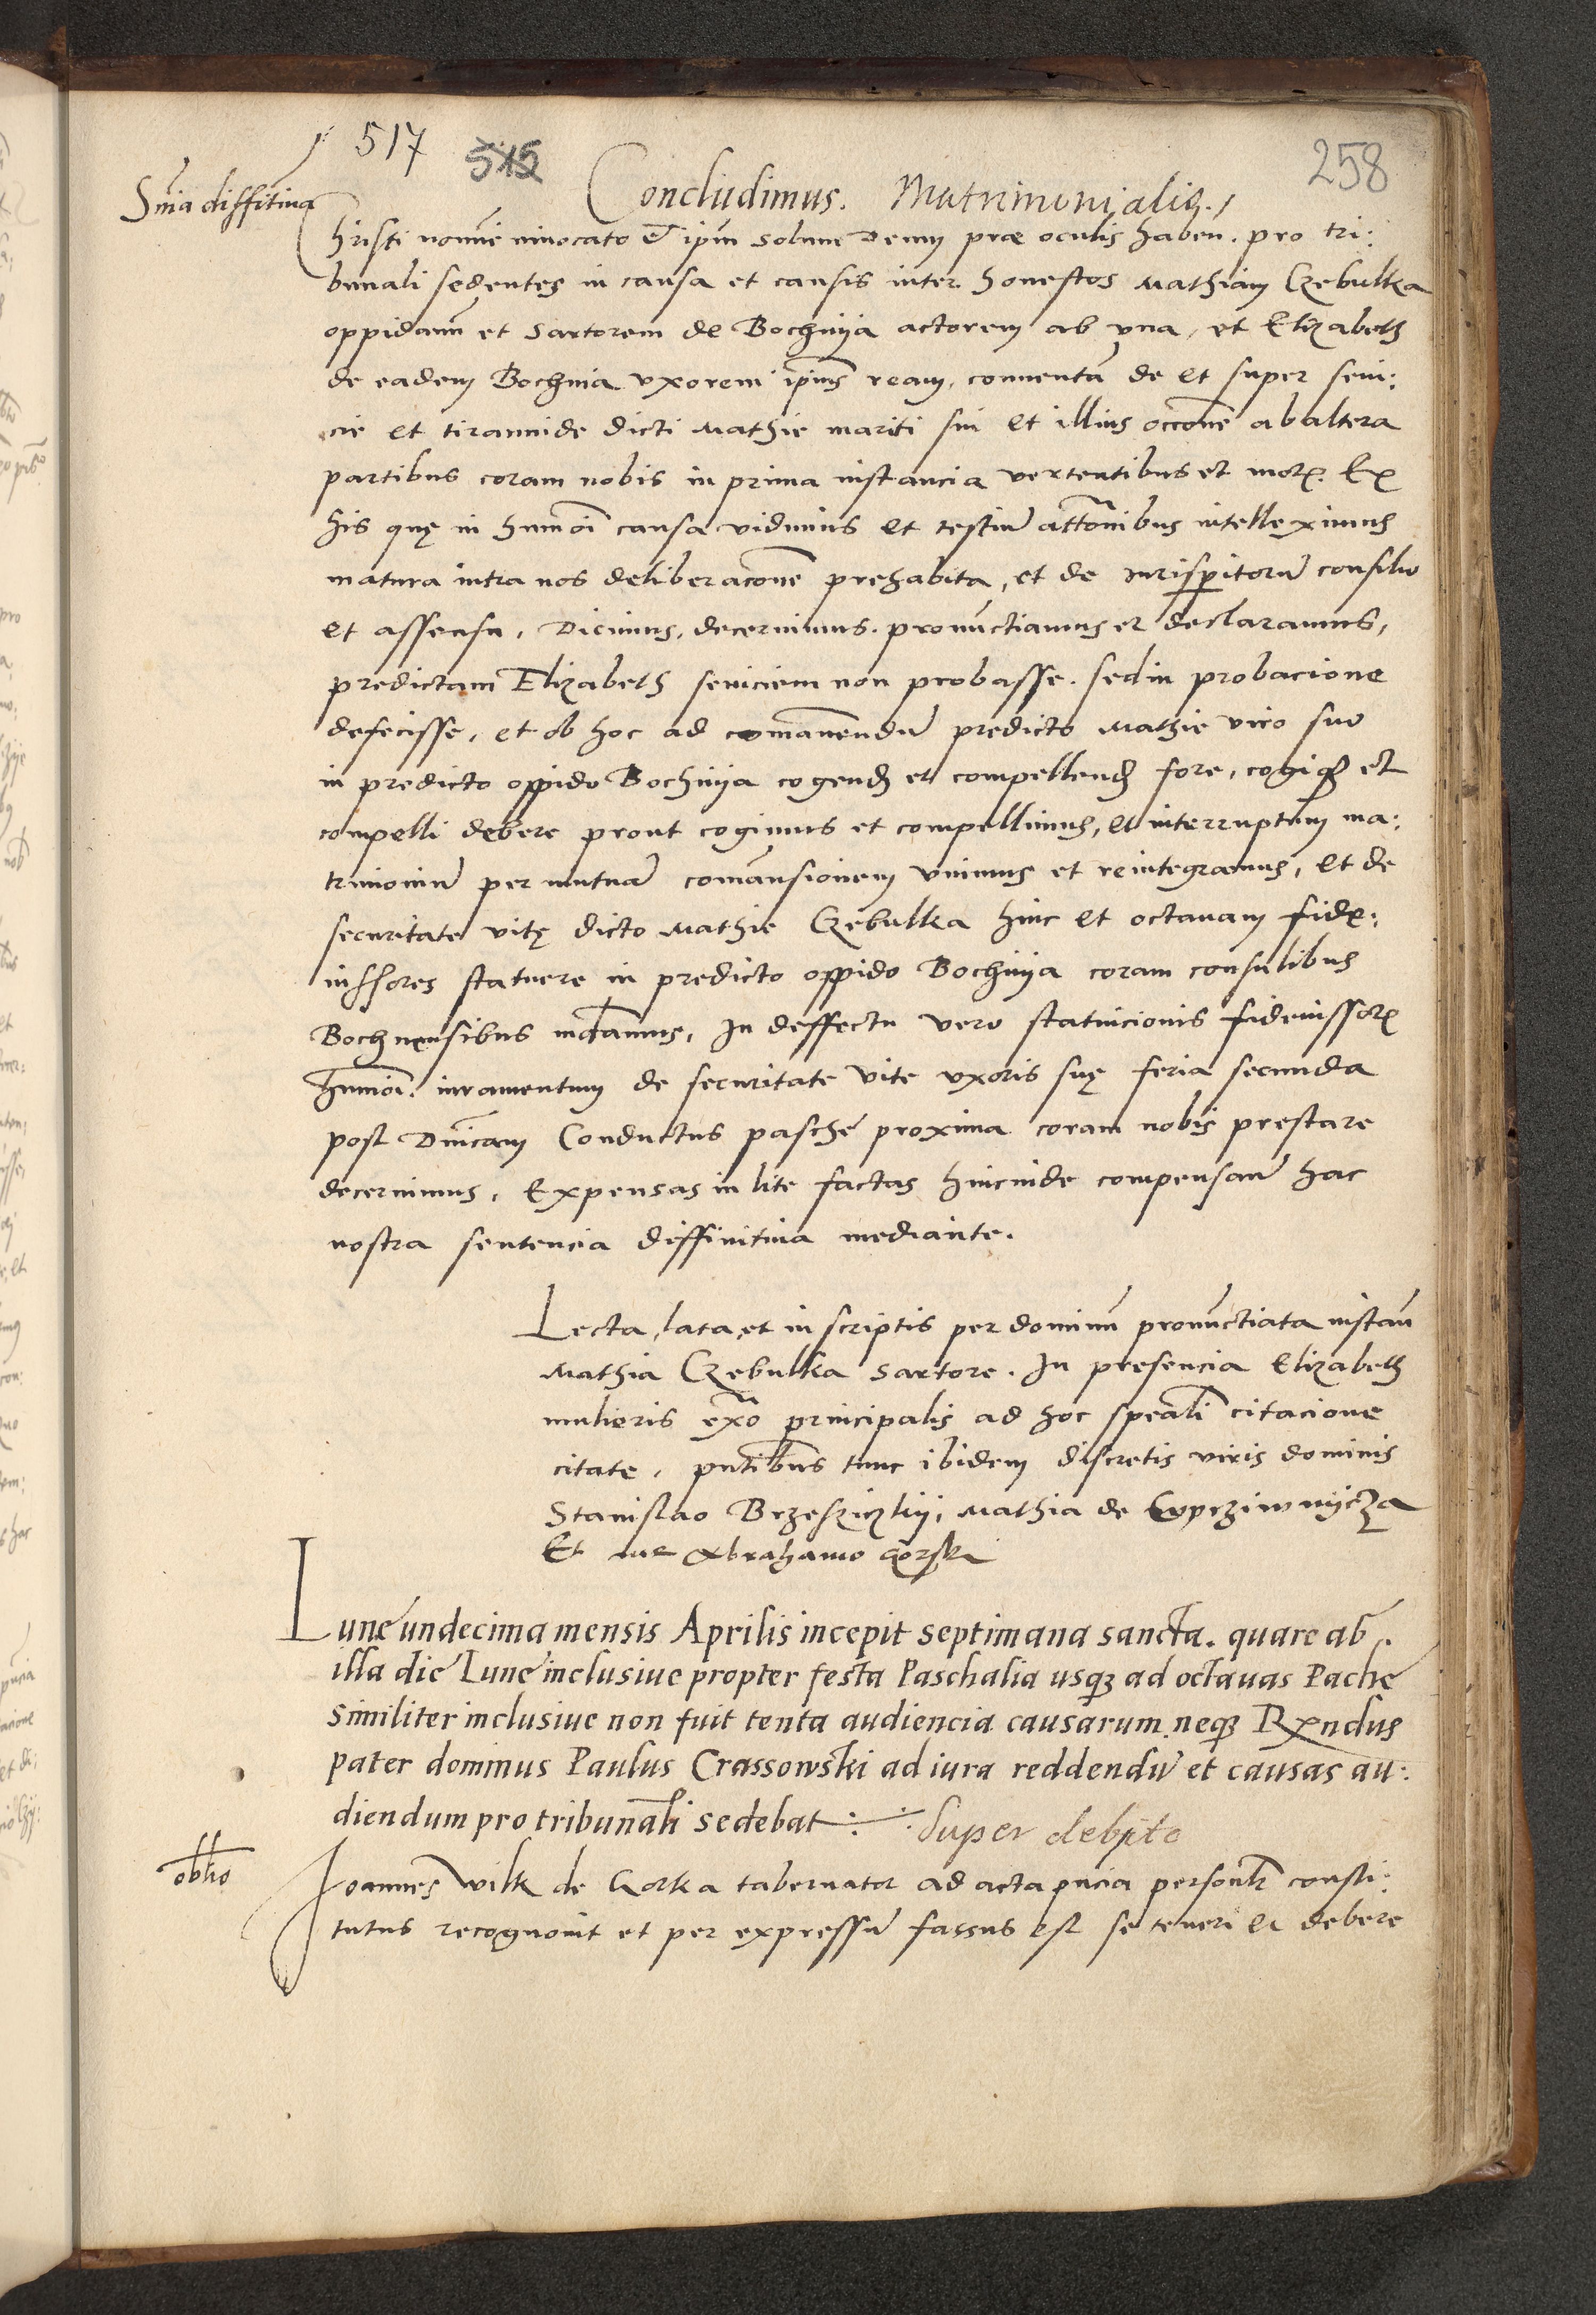 517 515 258
Concludimus. Matrimonialis.
Snia diffitiua
Christi nomine inuocato et ipm solum Deum prae oculis haben. pro tri:
bunali sedentes in causa et causis inter honestos Mathiam Czebulka
oppidanu et sartorem de Bochnya actorem ab vna, et Elizabeth
de eadem Bochnia vxorem ipius ream, conuenta de et super seui:
cie et tirannide dicti Mathie mariti sui et illius occone ab altera
partibus coram nobis in prima instancia vertentibus et mot. Ex
his quę in hmoi causa vidimus et testiu attonibus intelleximus
matura intra nos deliberacone prehabita, et de iurisperitoru consilio
et assensu, Dicimus, decernimus, pronunctiamus et declaramus,
predictam Elizabeth seuiciem non probasse. sed in probacione
defecisse, et ob hoc ad comanendu predicto Mathie viro suo
in predicto oppido Bochnya cogend et compellend fore, cogiq et
compelli debere prout cogimus et compellimus, et interruptum ma:
trimoniu per mutua comansionem vnimus et reintegramus, et de
securitate vitę dicto Mathie Czebulka hinc et octauam fide:
iussores statuere in predicto oppido Bochnya coram consulibus
Bochnensibus mdamus, In deffectu vero statuicionis fideiussor
hmoi. iuramentum de securitate vite vxoris suę feria secunda
post Dnicam Conductus pasche proxima coram nobis prestare
decernimus, Expensas in lite factas hincinde compensan hac
nostra sentencia diffinitiua mediante.
Lecta, lata, et in scriptis per dominu pronunctiata instan
Mathia Czebulka sartore. In presencia Elizabeth
mulieris exo principalis ad hoc speali citacione
citate, pntibus tunc ibidem discretis viris dominis
Stanislao Brzeszickij, Mathia de
Et me Abrahamo Gorski
Lune undecima mensis Aprilis incepit septimana sancta. quare ab
illa die Lune inclusiue propter festa Paschalia usq ad octauas Pache
similiter inclusiue non fuit tenta audiencia causarum neq Rxndus
pater dominus Paulus Crassowski ad iura reddendu et causas au:
diendum pro tribunali sedebat
Super debito
obtio
Joannes Wilk de Gorka tabernator ad acta pncia personlr consti:
tutus recognouit et per expressu fassus est se teneri et debere